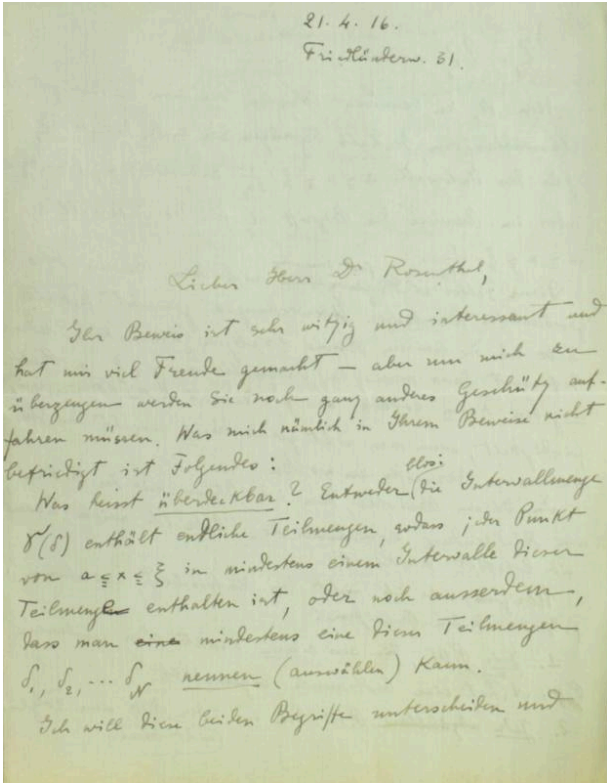 21. 4. 16.
Friedländerw. 31.
Lieber Herr Dr Rosenthal,
Ihr Beweis ist sehr witzig und interessant und
hat mir viel Freude gemacht – aber um mich zu
überzeugen werden Sie noch ganz anderes Geschütz auf-
fahren müssen. Was mich nämlich in Ihrem Beweise nicht
befriedigt ist Folgendes:
Was heisst überdeckbar? Entweder (blos: die Intervallmenge
γ(δ) enthält endliche Teilmengen, sodass jeder Punkt
von a ≦ x ≦ ξ in mindestens einem Intervalle dieser
Teilmenge enthalten ist, oder noch ausserdem,
dass man mindestens eine dieser Teilmengen
δ₁, δ₂, ... δ_N nennen (auswählen) kann.
Ich will diese beiden Begriffe unterscheiden und